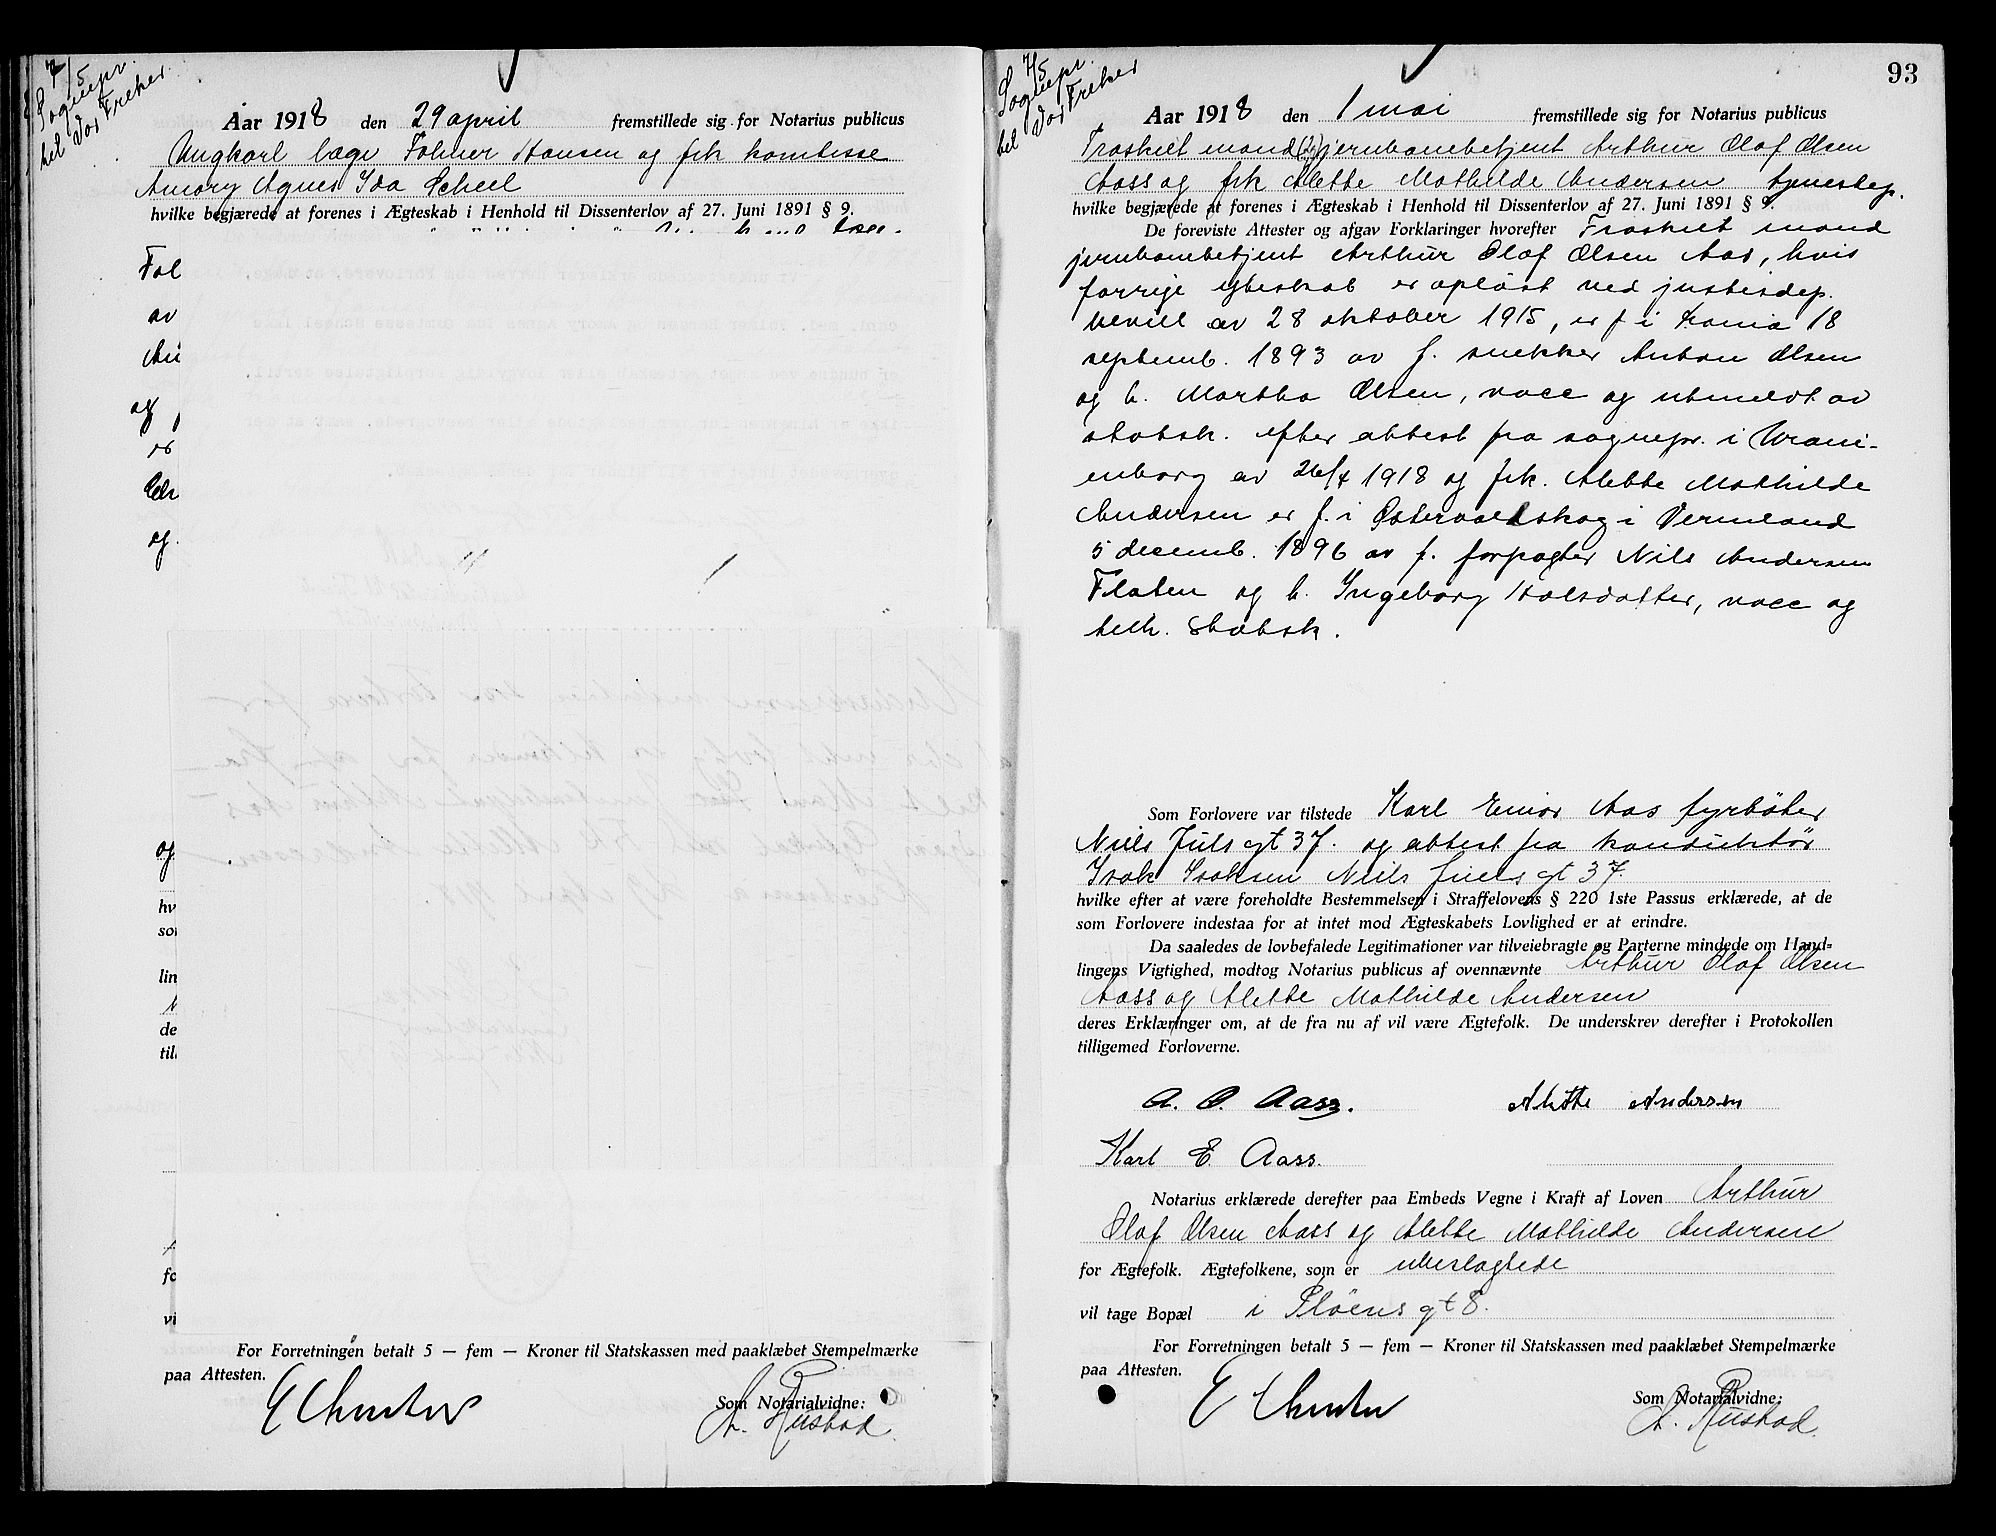 7/5
Sognepr.
til Vor Frelser
Aar 1918 den 29 april fremstillede sig for Notarius publicus
Ungkarl læge Folmer Hansen og frk komtesse
Amory Agnes Ida Scheel
hvilke begjærede at forenes i Ægteskab i Henhold til Dissenterlov af 27. Juni 1891 § 9.
Fol
av
og
er
og
og
hv
so
lin
de
til
fo
vi
For Forretningen betalt 5 — fem — Kroner til Statskassen med paaklæbet Stempelmærke
paa Attesten.
Som Notarialvidne:
A. Rustad
93
7/5
Sognepr.
til Vor Frelser
Aar 1918 den 1 mai fremstillede sig for Notarius publicus
Fraskilt mand (2) jernbanebetjent Arthur Olaf Olsen
Aass og frk Alette Mathilde Andersen tjenestep.
hvilke begjærede at forenes i Ægteskab i Henhold til Dissenterlov af 27. Juni 1891 § 9.
De foreviste Attester og afgav Forklaringer hvorefter Fraskilt mand
jernbanebetjent Arthur Olaf Olsen Aas, hvis
forrige egteskab er opløst ved justisdep.
bevill av 28 oktober 1915, er f i Kra­nia 18
septemb. 1893 av f. snekker Anton Olsen
og h. Martha Olsen, vacc og utmeldt av
statsk. efter attest fra sognepr. i Urani-
enborg av 26/4 1918 og frk. Alette Mathilde
Andersen er f. i Østervaldskog i Vermland
5 decemb. 1896 av f. forpagter Nils Andersen
Flaten og h. Ingeborg Halsdatter, vacc og
tilh. Statsk.
Som Forlovere var tilstede Karl Einar Aas fyrbøter
Niels Juls gt 37. og attest fra konduktør
Isak Isaksen Niels Juels gt 37.
hvilke efter at være foreholdte Bestemmelsen i Straffelovens § 220 1ste Passus erklærede, at de
som Forlovere indestaa for at intet mod Ægteskabets Lovlighed er at erindre.
Da saaledes de lovbefalede Legitimationer var tilveiebragte og Parterne mindede om Hand-
lingens Vigtighed, modtog Notarius publicus af ovennævnte Arthur Olaf Olsen
Aass og Alette Mathilde Andersen
deres Erklæringer om, at de fra nu af vil være Ægtefolk. De underskrev derefter i Protokollen
tilligemed Forloverne.
A. O. Aass. Alette Andersen
Karl E. Aass.
Notarius erklærede derefter paa Embeds Vegne i Kraft af Loven Arthur
Olaf Olsen Aass og Alette Mathilde Andersen
for Ægtefolk. Ægtefolkene, som er ubeslægtede
vil tage Bopæl i Pløens gt 8.
For Forretningen betalt 5 — fem — Kroner til Statskassen med paaklæbet Stempelmærke
paa Attesten.
Som Notarialvidne:
A. Rustad